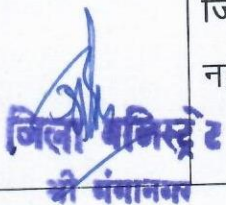 जि
न
जिला मजिस्ट्रेट
श्री गंगानगर